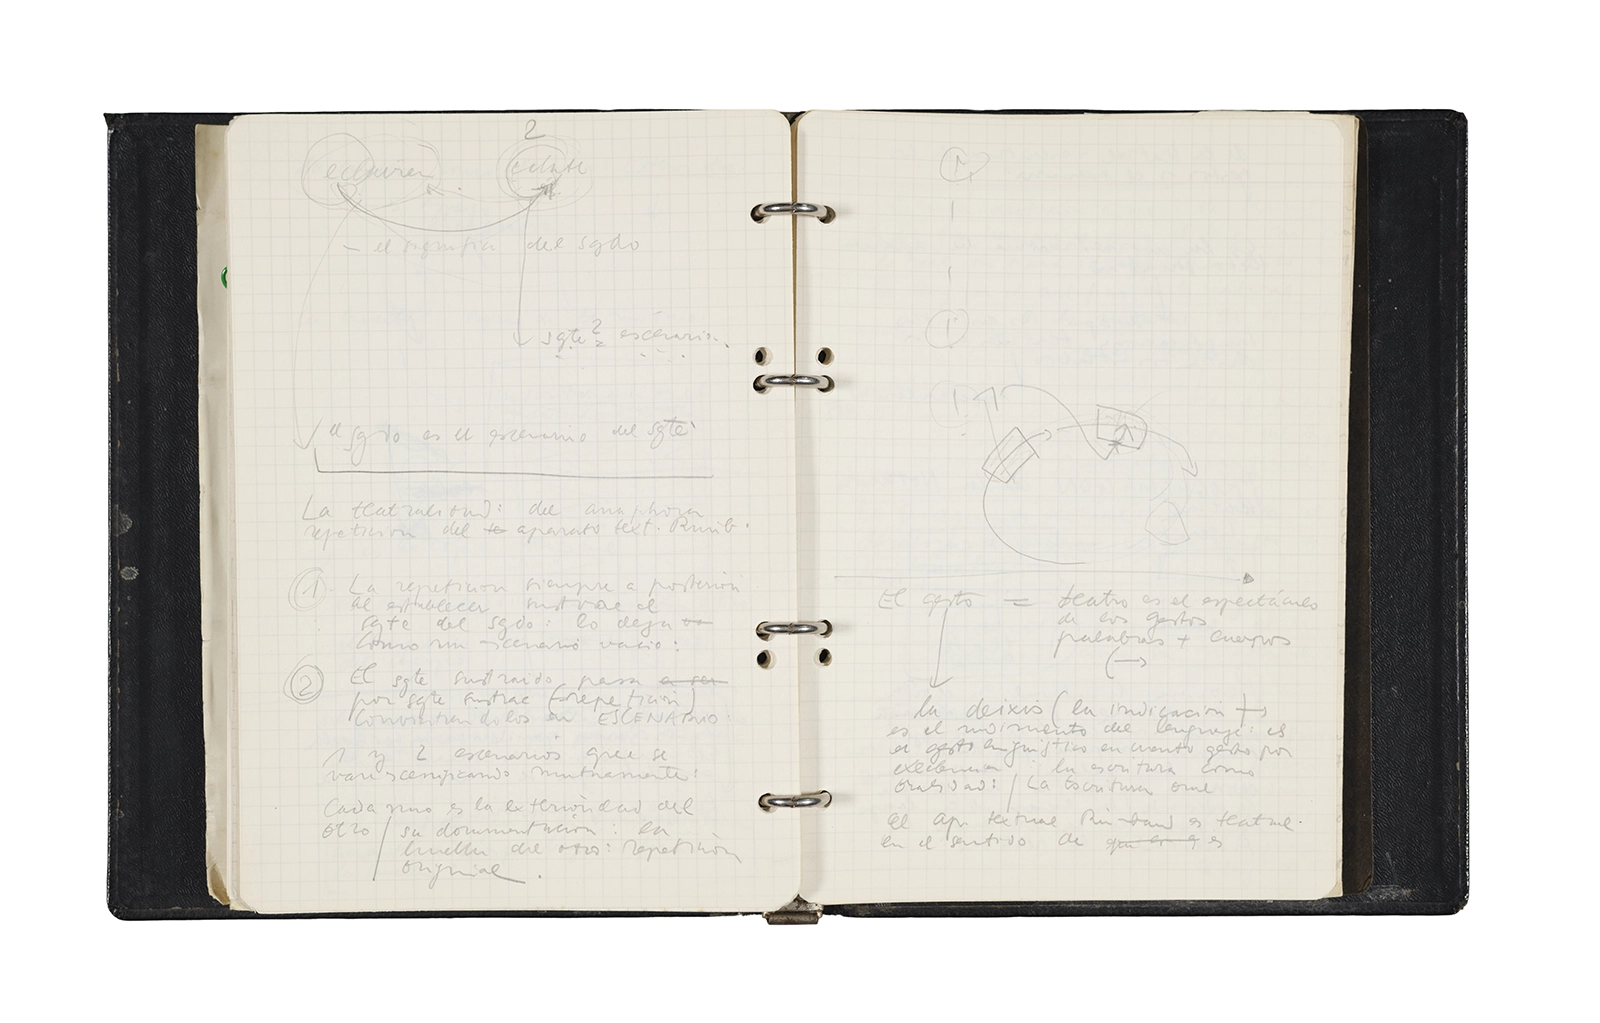 2
- el significa del sgdo
sgte 2 escenario.
el sgdo es el escenario del sgte
La teatralidad: del anaphora
repetición del te aparato text. Rimb.
1 La repetición siempre a posteriori
al establecer sustrae el
sgte del sgdo: lo deja
como un escenario vacío:
2 El sgte sustraido pasa a ser
por sgte sustrae (repetición)
convirtiendolos en ESCENARIO:
1 y 2 escenarios que se
van escenificando mutuamente:
Cada uno es la exterioridad del
otro / su documentación: la
huella del otro: repetición
original.
1
1
1
1
1
El gesto = teatro es el espectáculo
de los gestos
palabras + cuerpos
(→)
la deixis (la indicación →
es el movimiento del lenguaje: es
el gesto lingüístico en cuanto gesto por
excelencia: la escritura como
oralidad: / La Escritura oral
el apr textual Rim-baud es teatral
en el sentido de que es